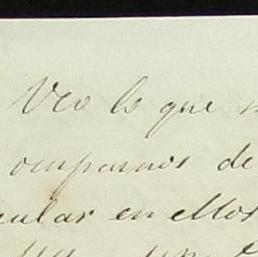 Veo lo que
ocuparnos de
cular en ellos